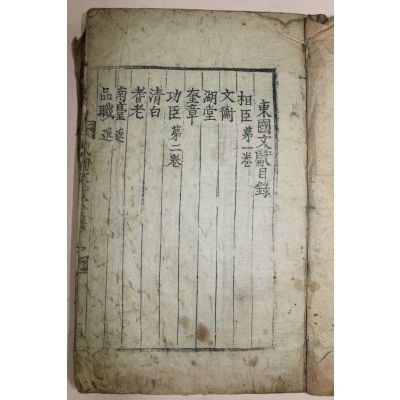 東國文獻目錄
相臣 第一卷
文衡
湖堂
奎章
功臣 第二卷
清白
耆老
南臺 逸
品職 逸